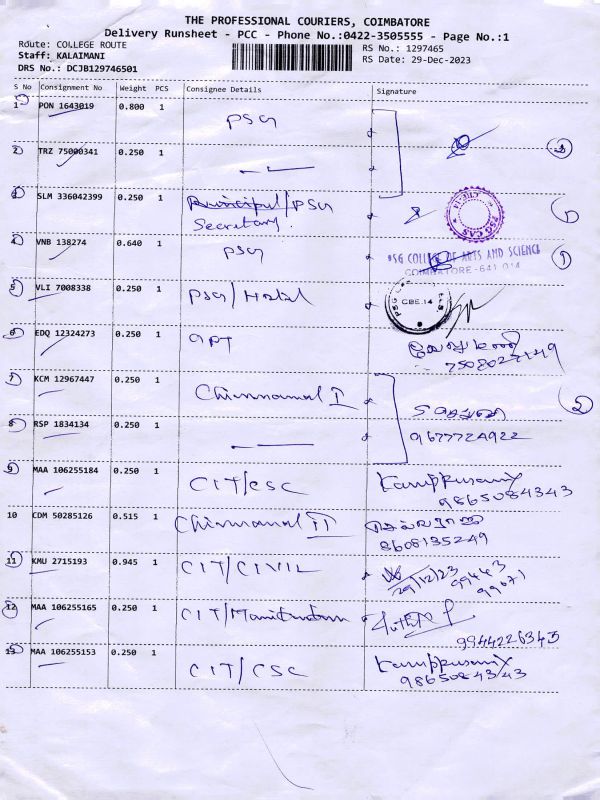 THE PROFESSIONAL COURIERS, COIMBATORE
Delivery Runsheet - PCC - Phone No.:0422-3505555 - Page No.:1
Route: COLLEGE ROUTE
RS No.: 1297465
Staff: KALAIMANI
RS Date: 29-Dec-2023
DRS No.: DCJB129746501
S No Consignment No Weight PCS Consignee Details Signature
1 PON 1643019 0.800 1 PSG
2 TRZ 75000341 0.250 1
3 SLM 336042399 0.250 1 Principal/PSG
Secretary.
4 VNB 138274 0.640 1 PSG
PSG COLLEGE OF ARTS AND SCIENCE
COIMBATORE-641 014
5 VLI 7008338 0.250 1 PSG/Hostel
CBE.14
6 EDQ 12324273 0.250 1 GPT
7 KCM 12967447 0.250 1 Chinnamal I
8 RSP 1834134 0.250 1
9677724922
9 MAA 106255184 0.250 1 CIT/CSC
9865084343
10 CDM 50285126 0.515 1 Chinnamal II
8608135249
11 KMU 2715193 0.945 1 CIT/CIVIL
29/12/23 99443
99071
12 MAA 106255165 0.250 1 CIT/
9944226343
13 MAA 106255153 0.250 1 CIT/CSC
9865084343